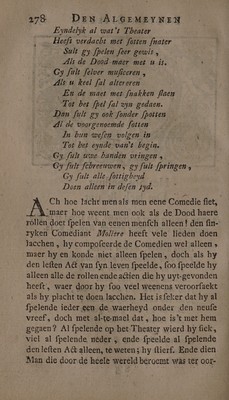 278 DEN ALGEMEYNEN
Eyndelyk al wat's Theater
Heeft verdacht met sotten snater
Sult gy spelen seer gewis,
Als de Dood maer met u is.
Gy sult selver musiceren,
Als u keel sal altereren
En de maet met snakken slaen
Tot het spel sal zyn gedaen.
Dan sult gy ook sonder spotten
Al de voorgenoemde sotten
In hun wesen volgen in
Tot het eynde van't begin.
Gy sult uwe handen vringen,
Gy sult schreeuwen, gy sult springen,
Gy sult alle sottigheyd
Doen alleen in desen tyd.
ACh hoe lacht men als men eene Comedie siet,
maer hoe weent men ook als de Dood haere
rollen doet spelen van eenen mensch alleen! den sin-
ryken Comediant Moliere heeft vele lieden doen
lacchen, hy composeerde de Comedien wel alleen,
maer hy en konde niet alleen spelen, doch als hy
den lesten Act van syn leven speelde, soo speelde hy
alleen alle de rollen ende actien die hy uyt-gevonden
heeft, waer door hy soo veel weenens veroorsaekt
als hy placht te doen lacchen. Het is seker dat hy al
spelende ieder een de waerheyd onder den neuse
vreef, doch met al-te-mael dat, hoe is't met hem
gegaen? Al spelende op het Theater wierd hy siek,
viel al spelende neder, ende speelde al spelende
den lesten Act alleen, te weten; hy stierf. Ende dien
Man die door de heele wereld beroemt was ter oor-